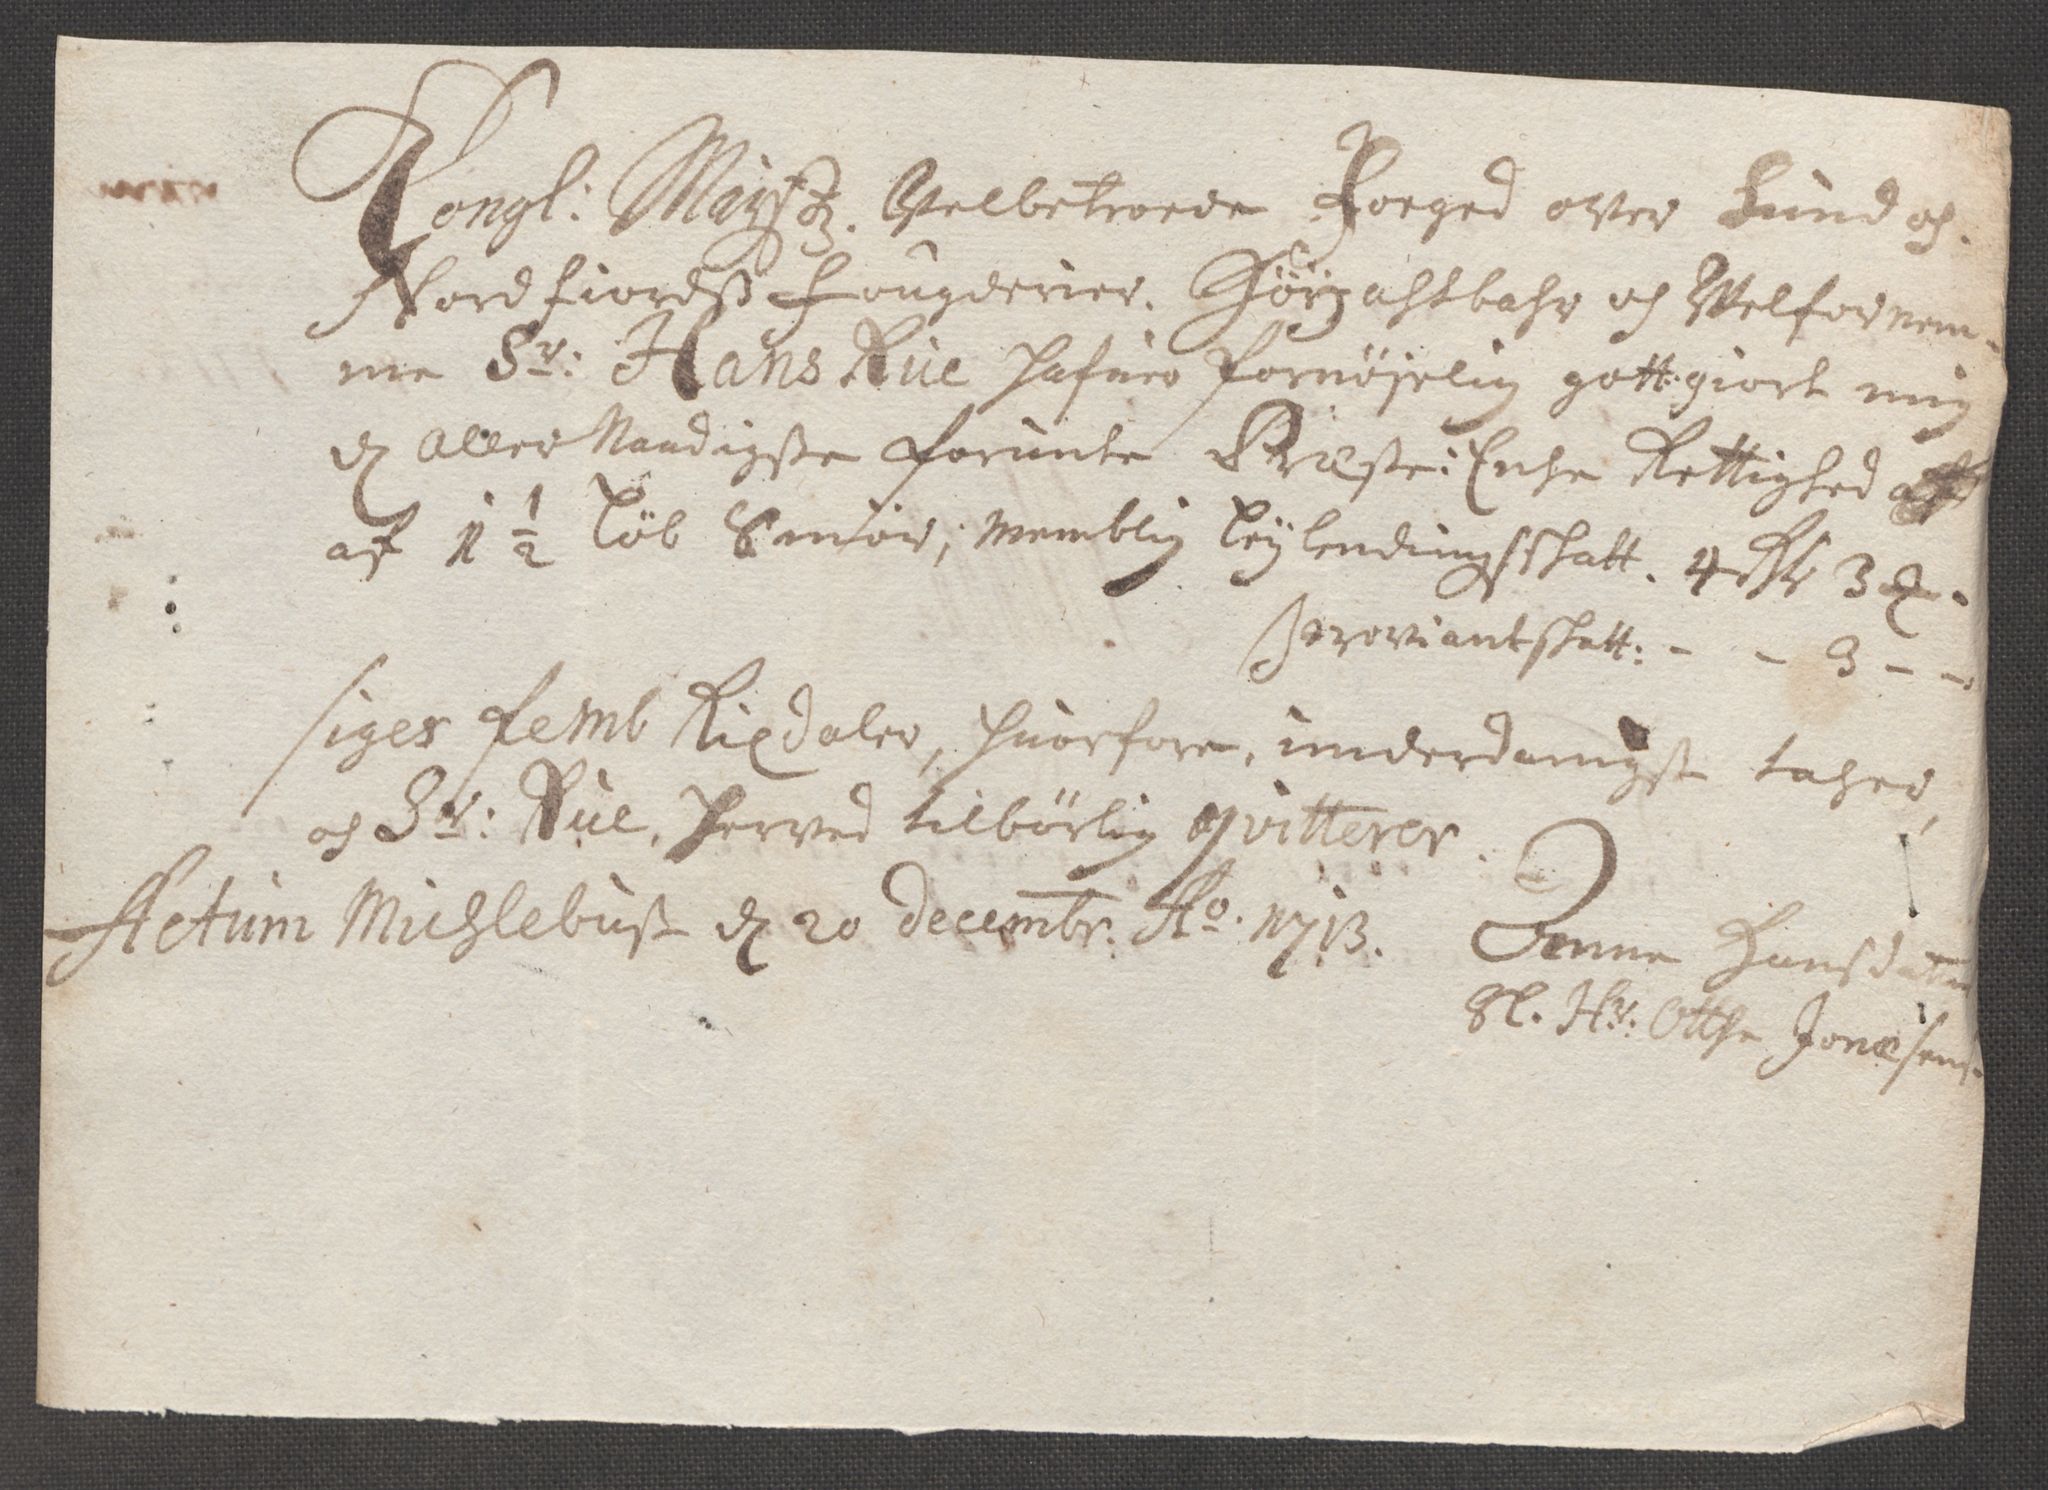 Kongl: Maystz. Velbetroede Foeged over Sund och
Nordfiordß Fougderier. Höyachtbahr och Velfornem-
me Sr: Hans Rüe hafuer fornöjelig gott giort mig
dn Aller Naadigste forunte Præste: Enche Rettighed
af 1 1/2 Löb Smör, Nemblig Leylendingsschatt. 4 Rdr 3
Proviantschatt: - - 3 - -
siges femb Rixdaler, huorfore, underdanigst tacher,
och Sr: Rüe, herved tilbörlig qvitterer.
Actum Michlebust dn 20 decembr: Ao. 1713. Anne Hansdatter
Sl. Hr: Otthe Jonæsens